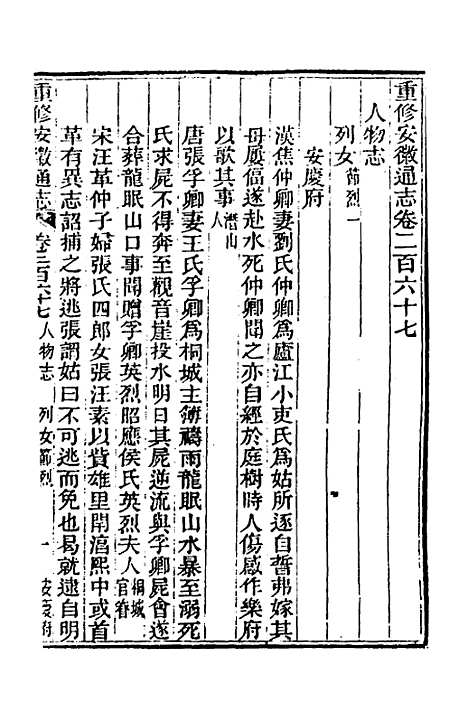 重修安徽通志卷二百六十七
人物志
列女節烈一
安慶府
漢焦仲卿妻劉氏仲卿爲廬江小吏氏爲姑所逐自誓弗嫁其
母屢偪遂赴水死仲卿聞之亦自經於庭樹時人傷感作樂府
以歌其事潛山人
唐張孚卿妻王氏孚卿爲桐城主簿禱雨龍眠山水暴至溺死
氏求屍不得奔至觀音崖投水明日其屍逆流與孚卿屍會遂
合葬龍眠山口事聞贈孚卿英烈昭應侯氏英烈夫人桐城官眷
宋汪革仲子婦張氏四郎女張汪素以貲雄里閈湻熙中或首
革有異志詔捕之將逃張謂姑曰不可逃而免也曷就逮自明
重修安徽通志 卷二百六十七 人物志 列女節烈 一 安慶府